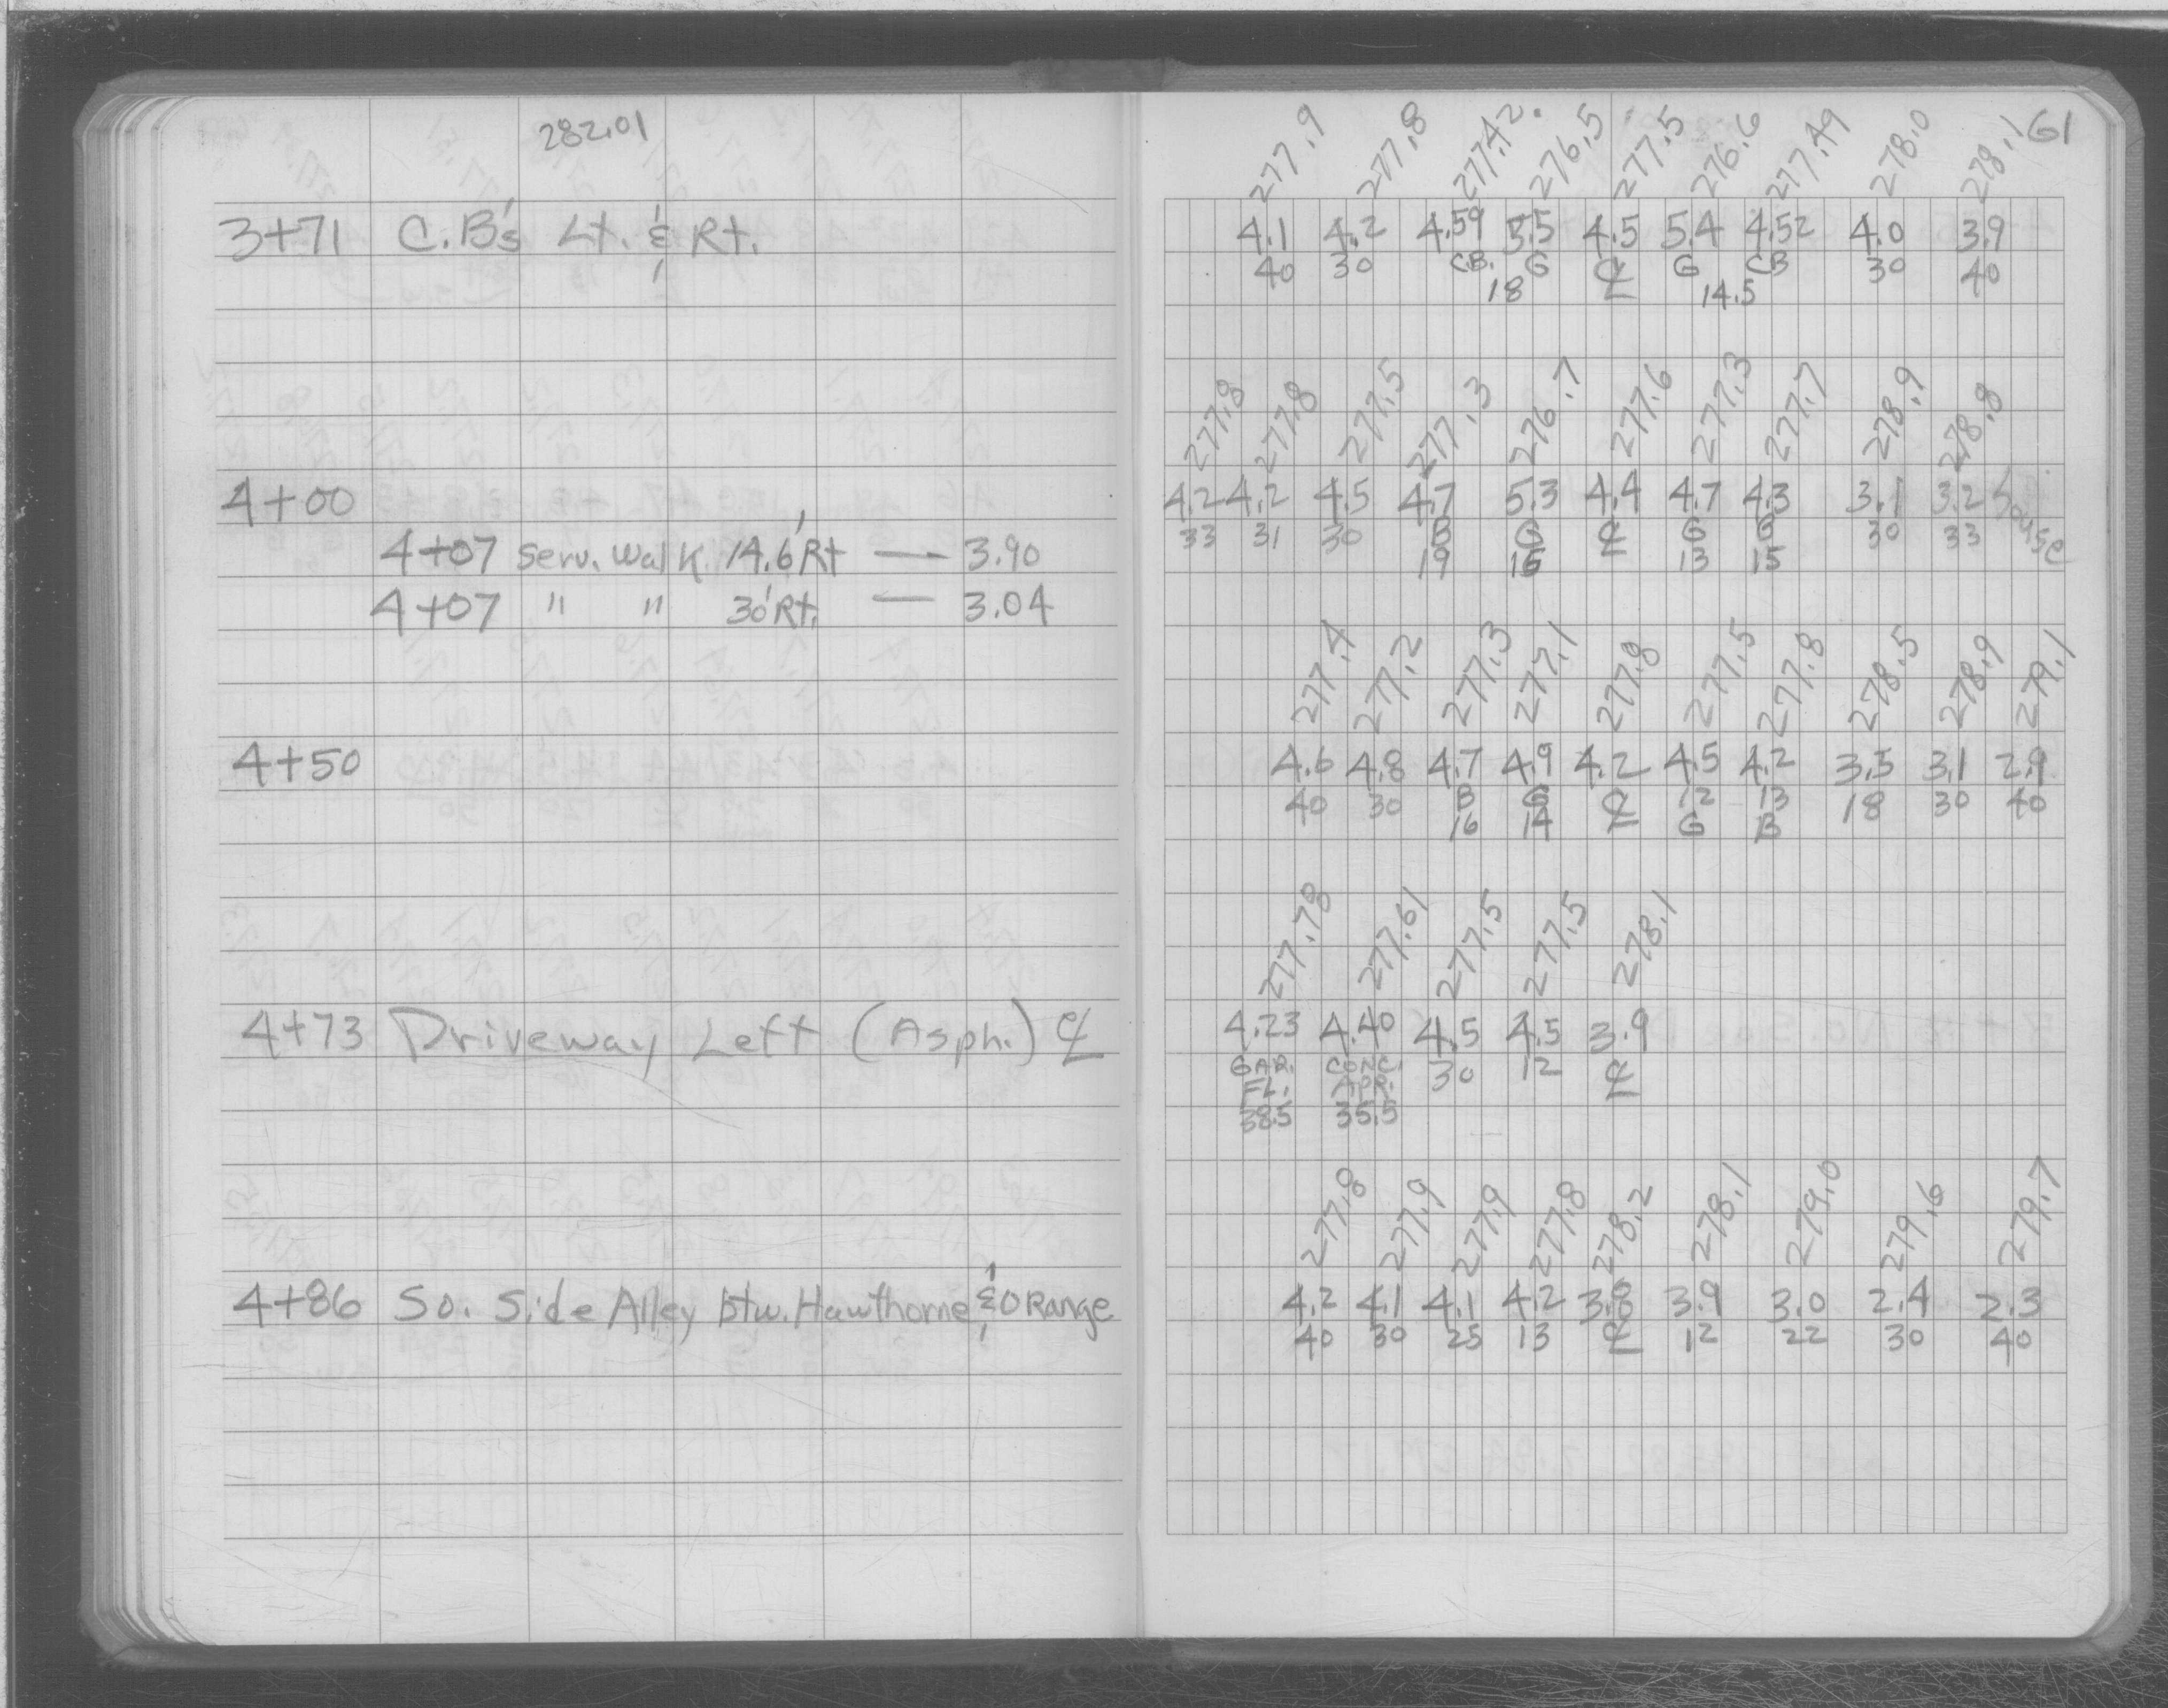 282.01
3+71 C.B's Lt. & Rt.
4+00
4+07 Serv. Walk 14.6' Rt — 3.90
4+07 " " 30' Rt. — 3.04
4+50
4+73 Driveway Left (Asph.) ℄
4+86 So. Side Alley btw. Hawthorne & Orange
61
277.9 277.8 277.42 276.5 277.5 276.6 277.49 278.0 278.1
4.1 4.2 4.59 5.5 4.5 5.4 4.52 4.0 3.9
40 30 C.B. G ℄ G CB 30 40
18 14.5
277.8 277.8 277.5 277.3 276.7 277.6 277.3 277.7 278.9 278.8
4.2 4.2 4.5 4.7 5.3 4.4 4.7 4.3 3.1 3.2 House
33 31 30 B G ℄ G B 30 33
19 16 13 15
277.4 277.2 277.3 277.1 277.8 277.5 277.8 278.5 278.9 279.1
4.6 4.8 4.7 4.9 4.2 4.5 4.2 3.5 3.1 2.9
40 30 B G ℄ 12 13 18 30 40
16 14 G B
277.78 277.61 277.5 277.5 278.1
4.23 4.40 4.5 4.5 3.9
GAR. CONC. 30 12 ℄
FL. APR.
38.5 35.5
277.8 277.9 277.9 277.8 278.2 278.1 279.0 279.6 279.7
4.2 4.1 4.1 4.2 3.8 3.9 3.0 2.4 2.3
40 30 25 13 ℄ 12 22 30 40